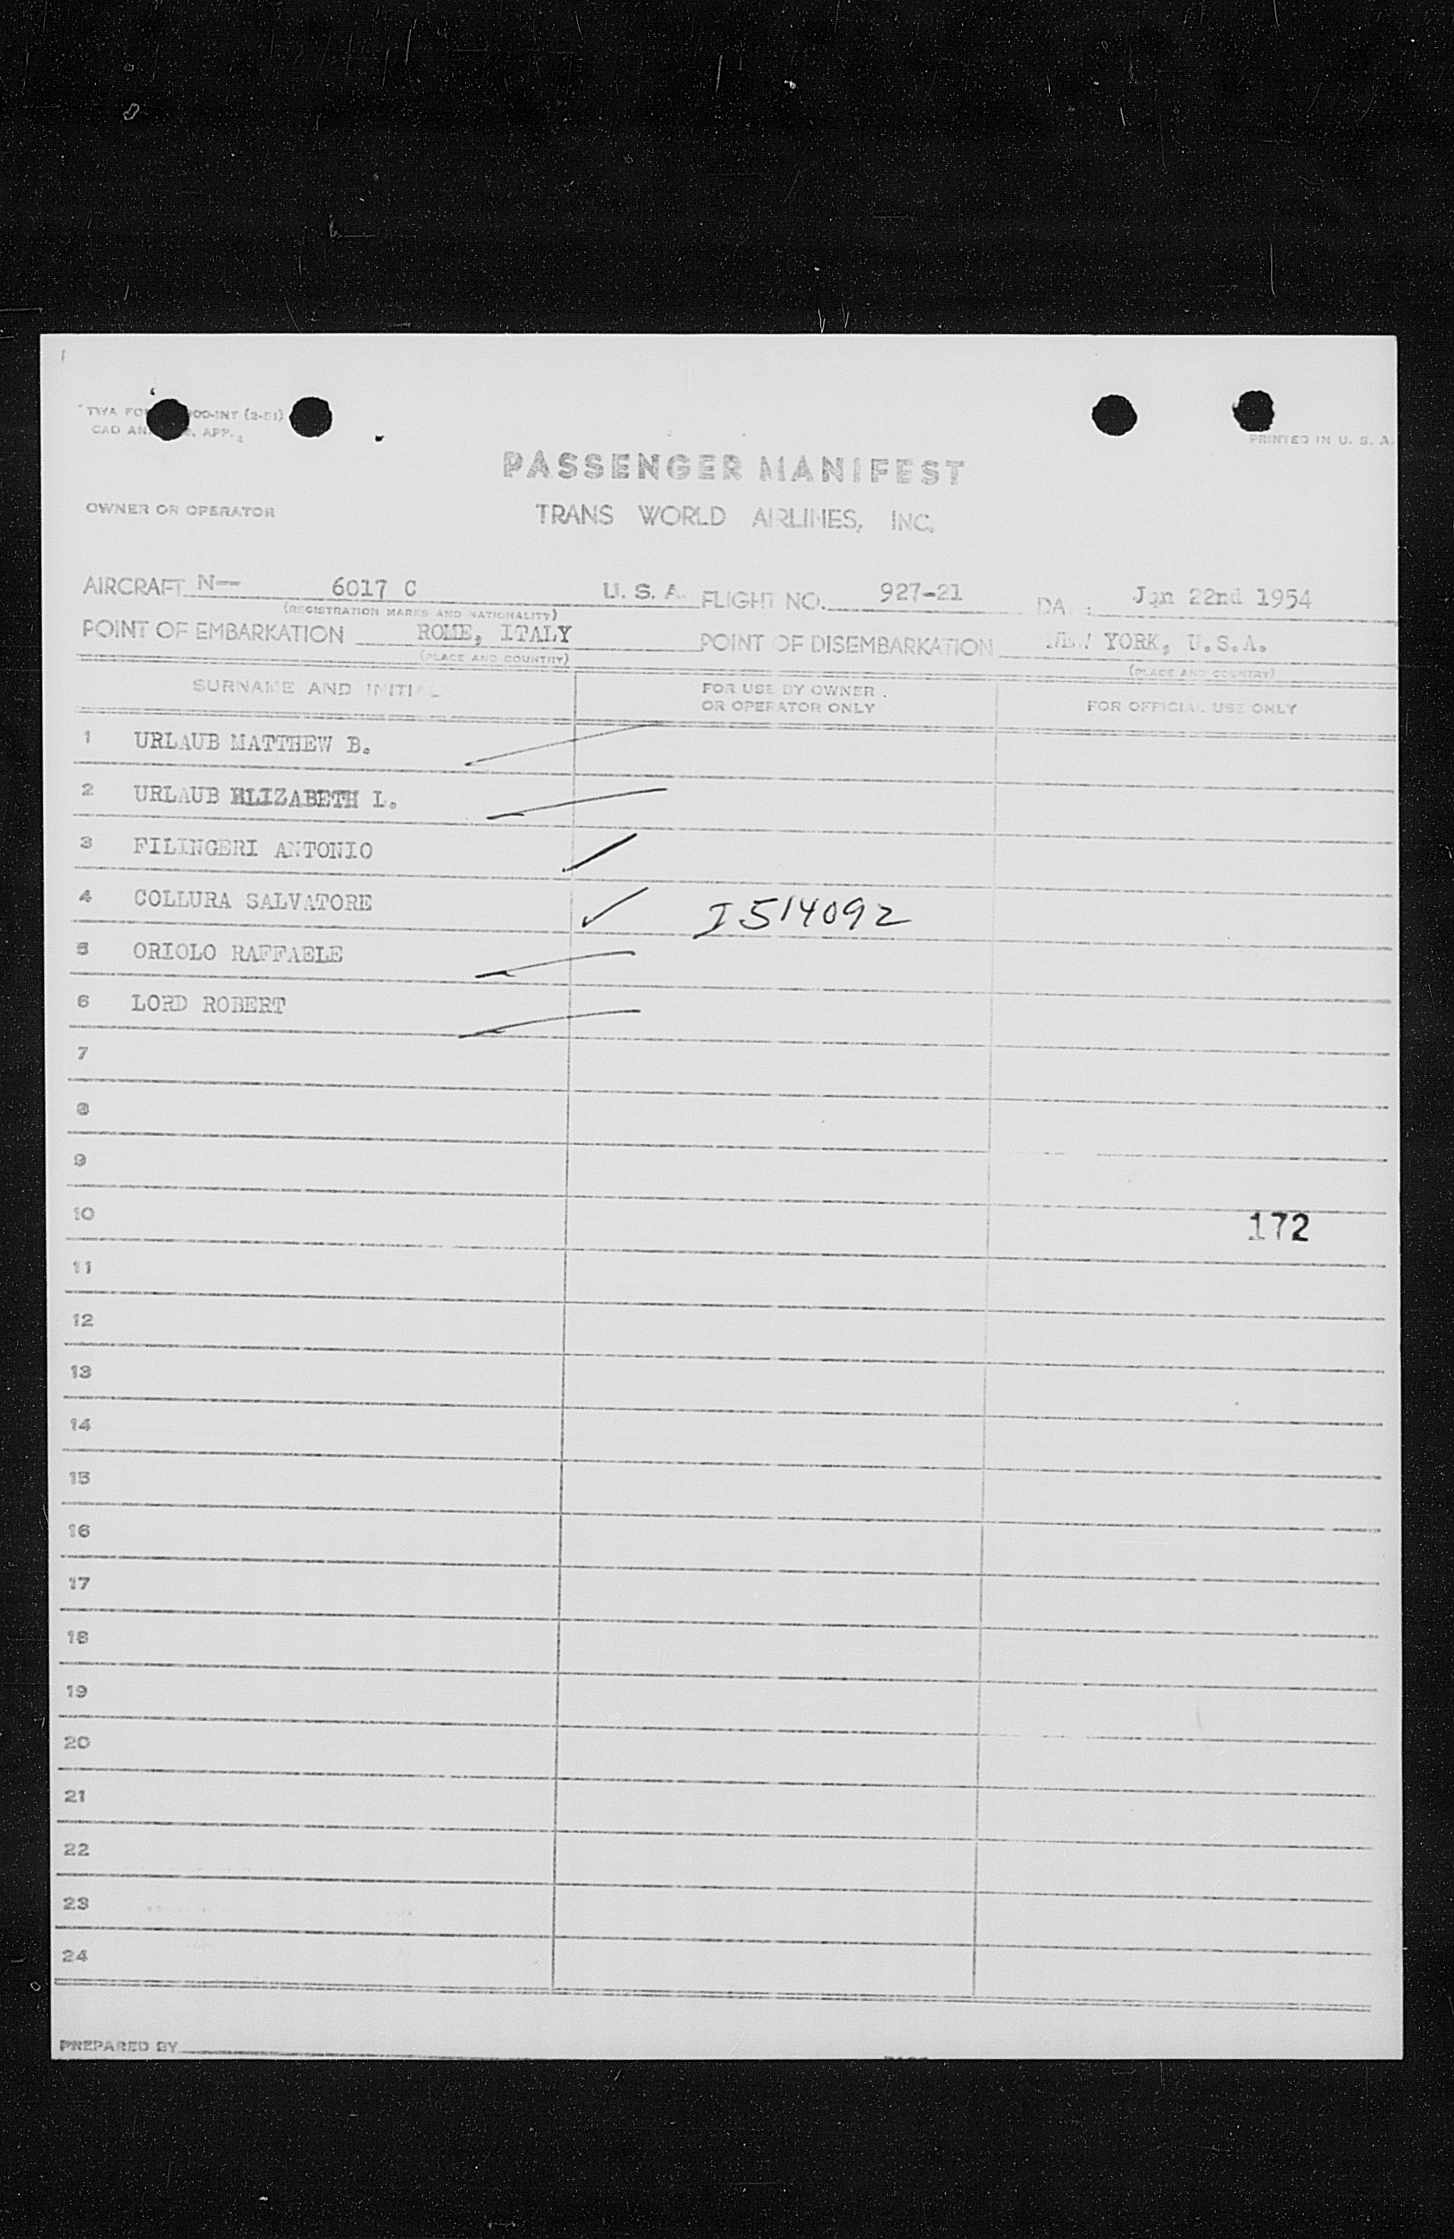 PRINTED IN U. S. A.
PASSENGER MANIFEST
OWNER OR OPERATOR
TRANS WORLD AIRLINES, INC.
AIRCRAFT N-- 6017 C U. S. A. FLIGHT NO. 927-21 Jan 22nd 1954
(REGISTRATION MARKS AND NATIONALITY)
POINT OF EMBARKATION ROME, ITALY POINT OF DISEMBARKATION NEW YORK, U.S.A.
(PLACE AND COUNTRY) (PLACE AND COUNTRY)
SURNAME AND INITIAL FOR USE BY OWNER OR OPERATOR ONLY FOR OFFICIAL USE ONLY
1 URLAUB MATTHEW B.
2 URLAUB ELIZABETH L.
3 FILINGERI ANTONIO
4 COLLURA SALVATORE I 514092
5 ORIOLO RAFFAELE
6 LORD ROBERT
7
8
9
10 172
11
12
13
14
15
16
17
18
19
20
21
22
23
24
PREPARED BY